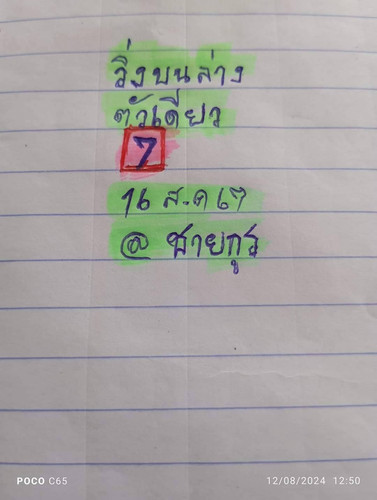 วิ่งบนล่าง
ตัวเดียว
7
16 ส.ค 67
@ ชายกูร
POCO C65
12/08/2024 12:50